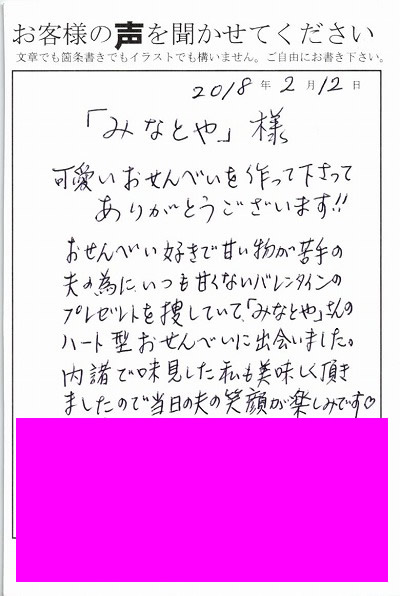 お客様の声を聞かせてください
文章でも箇条書きでもイラストでも構いません。ご自由にお書き下さい。
2018年2月12日
「みなとや」様
可愛いおせんべいを作って下さって
ありがとうございます!!
おせんべい好きで甘い物が苦手の
夫の為に、いつも甘くないバレンタインの
プレゼントを捜していて、「みなとや」さんの
ハート型おせんべいに出会いました。
内諸で味見した私も美味しく頂き
ましたので当日の夫の笑顔が楽しみです♡